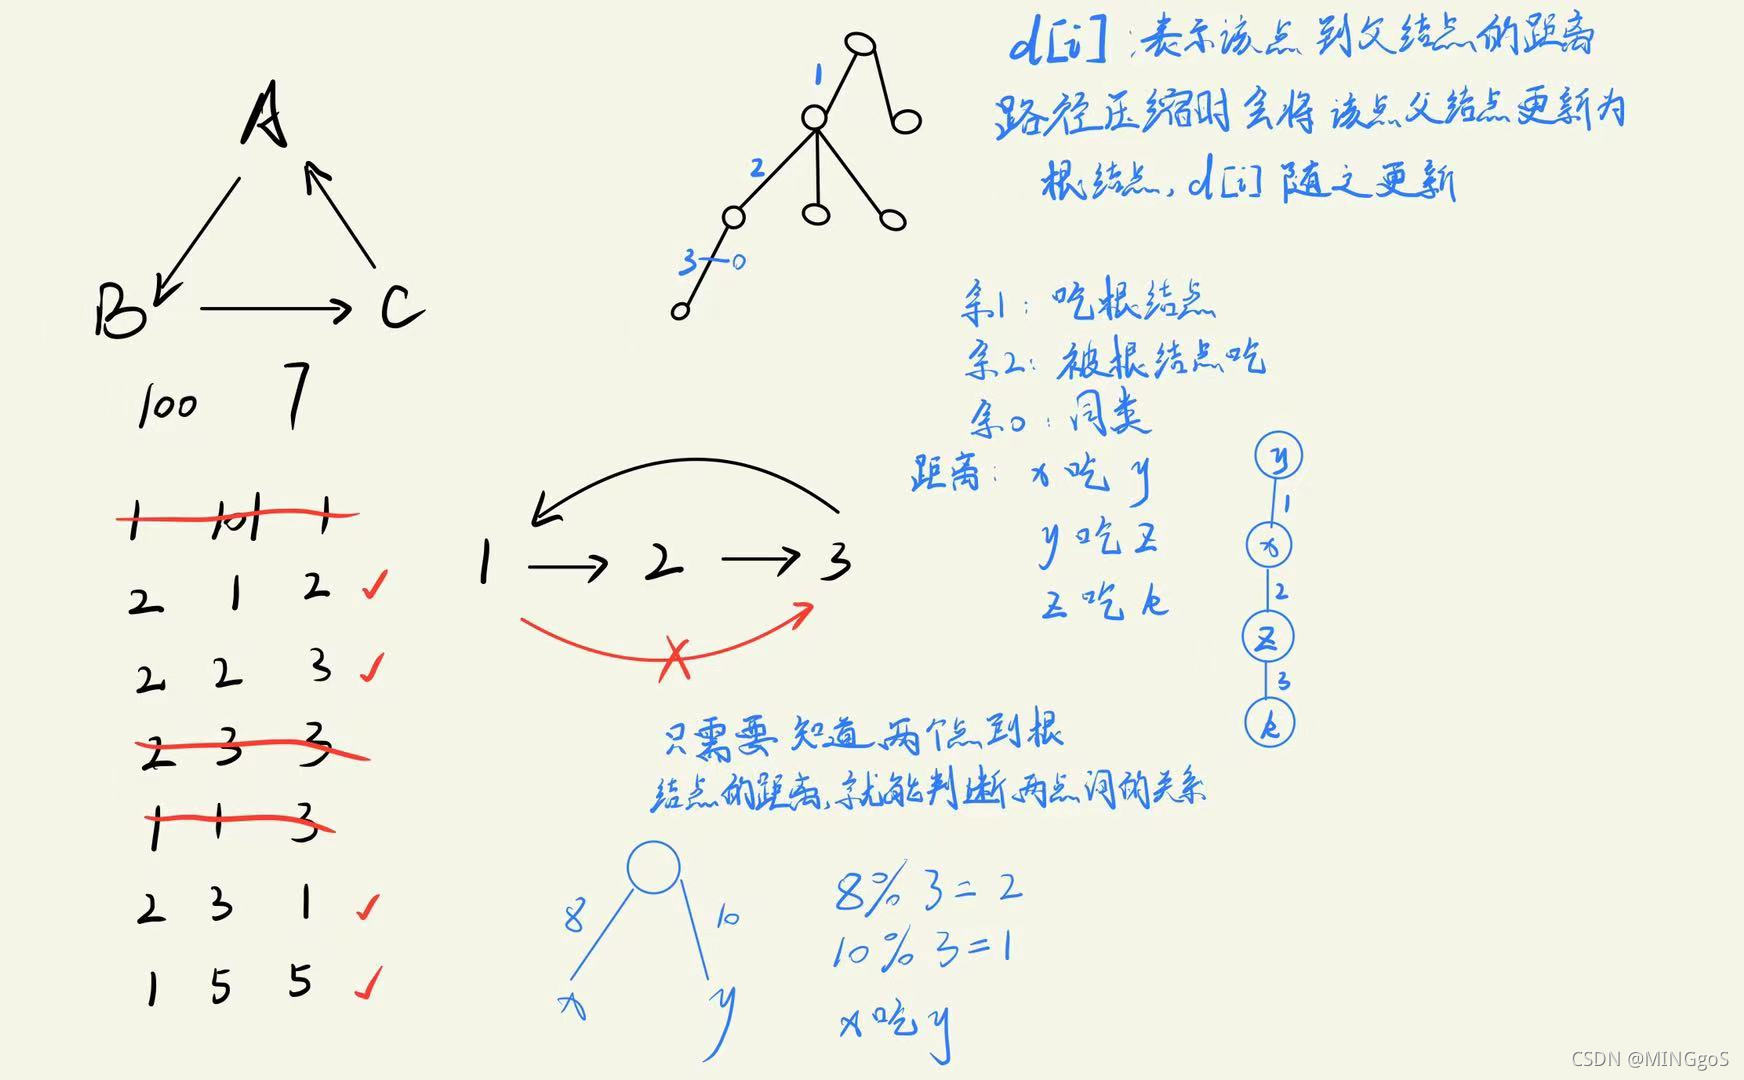 A
B
C
100 7
1 101 1
2 1 2 ✓
2 2 3 ✓
2 3 3
1 1 3
2 3 1 ✓
1 5 5 ✓
1
2
3 0
d[i]:表示该点到父结点的距离
路径压缩时会将该点父结点更新为
根结点,d[i]随之更新
余1:吃根结点
余2:被根结点吃
余0:同类
距离:x吃y
y吃z
z吃k
y
1
x
2
z
3
k
1 → 2 → 3
X
只需要知道两个点到根
结点的距离,就能判断两点间的关系
8 10
x y
8%3=2
10%3=1
x吃y
CSDN @MINGgoS